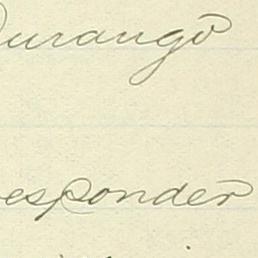 Durango
responder